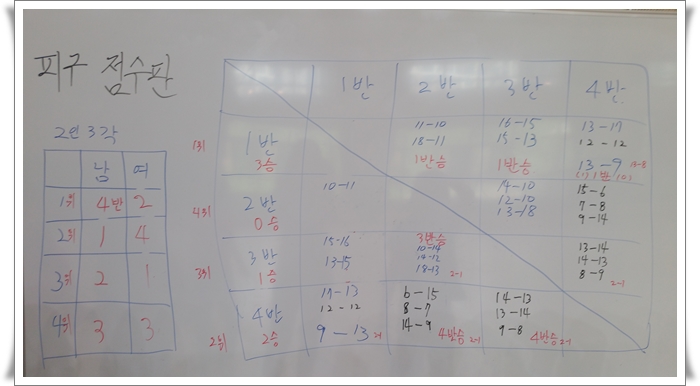 피구 점수판
2인 3각
남 여
1위 4반 2
2위 1 4
3위 2 1
4위 3 3
1반 2반 3반 4반
1위 1반 3승
11-10
18-11
1반승
16-15
15-13
1반승
13-17
12-12
13-9 13-8
4위 2반 0승
10-11
14-10
12-10
13-18
15-6
7-8
9-14
3위 3반 1승
15-16
13-15
3반승
10-14
14-12
18-13 2-1
13-14
14-13
8-9 2-1
2위 4반 2승
17-13
12-12
9-13 2-1
6-15
8-7
14-9 4반승 2-1
14-13
13-14
9-8 4반승 2-1